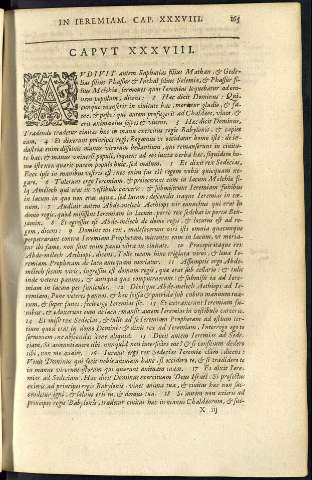 IN IEREMIAM. CAP. XXXVIII. 165
CAPVT XXXVIII.
AVDIVIT autem Saphatias filius Mathan, & Gede-
lias filius Phassur & Iuchal filius Selemiæ, & Phassur fi-
lius Melchiæ, sermones quos Ieremias loquebatur ad om-
nem populum, dicens: 2 Hæc dicit Dominus: Qui-
cumque manserit in ciuitate hac, morietur gladio, & fa-
me, & peste: qui autem profugerit ad Chaldæos, viuet, &
erit anima eius sospes & viuens. 3 Hæc dicit Dominus,
Tradendo tradetur ciuitas hæc in manu exercitus regis Babylonis, & capiet
eam. 4 Et dixerunt principes regi, Rogamus vt occidatur homo iste: de in-
dustria enim dissoluit manus virorum bellantium, qui remanserunt in ciuita-
te hac, & manus vniuersi populi, loquens ad eos iuxta verba hæc, siquidem ho-
mo iste non quærit pacem populo huic, sed malum. 5 Et dixit rex Sedecias,
Ecce ipse in manibus vestris est: nec enim fas est regem vobis quicquam ne-
gare. 6 Tulerunt ergo Ieremiam, & proiecerunt eum in lacum Melchiæ fi-
lij Amelech qui erat in vestibulo carceris: & submiserunt Ieremiam funibus
in lacum in quo non erat aqua, sed lutum: descendit itaque Ieremias in cœ-
num. 7 Audiuit autem Abde-melech Aethiops vir eunuchus qui erat in
domo regis, quod misissent Ieremiam in lacum: porro rex sedebat in porta Ben-
iamin. 8 Et egressus est Abde-melech de domo regis, & locutus est ad re-
gem, dicens: 9 Domine mi rex, malefecerunt viri isti omnia quæcumque
perpetrarunt contra Ieremiam Prophetam, mittentes eum in lacum, vt moria-
tur ibi fame, non sunt enim panes vltra in ciuitate. 10 Præcepit itaque rex
Abde-melech Aethiopi, dicens, Tolle tecum hinc triginta viros, & leua Ie-
remiam Prophetam de lacu antequam moriatur. 11 Assumptis ergo Abde-
melech secum viris, ingressus est domum regis, quæ erat sub cellario: & tulit
inde veteres pannos, & antiqua quæ computruerant: & submisit ea ad Iere-
miam in lacum per funiculos. 12 Dixitque Abde-melech Aethiops ad Iere-
miam, Pone veteres pannos, & hæc scissa & putrida sub cubito manuum tua-
rum, & super funes: fecit ergo Ieremias sic. 13 Et extraxerunt Ieremiam fu-
nibus, & eduxerunt eum de lacu: mansit autem Ieremias in vestibulo carceris.
14 Et misit rex Sedecias, & tulit ad se Ieremiam Prophetam ad ostium ter-
tium quod erat in domo Domini: & dixit rex ad Ieremiam, Interrogo ego te
sermonem: ne abscondas à me aliquid. 15 Dixit autem Ieremias ad Sede-
ciam, Si annuntiauero tibi, nunquid non interficies me? & si consilium dedero
tibi, non me audies. 16 Iurauit ergo rex Sedecias Ieremiæ clam dicens:
Viuit Dominus qui fecit nobis animam hanc, si occidero te, & si tradidero te
in manus virorum istorum qui quærunt animam tuam. 17 Et dixit Iere-
mias ad Sedeciam, Hæc dicit Dominus exercituum Deus Israël: Si profectus
exieris ad principes regis Babylonis, viuet anima tua, & ciuitas hæc non suc-
cendetur igni: & saluus eris tu, & domus tua. 18 Si autem non exieris ad
principes regis Babylonis, tradetur ciuitas hæc in manus Chaldæorum, & suc-
X iij